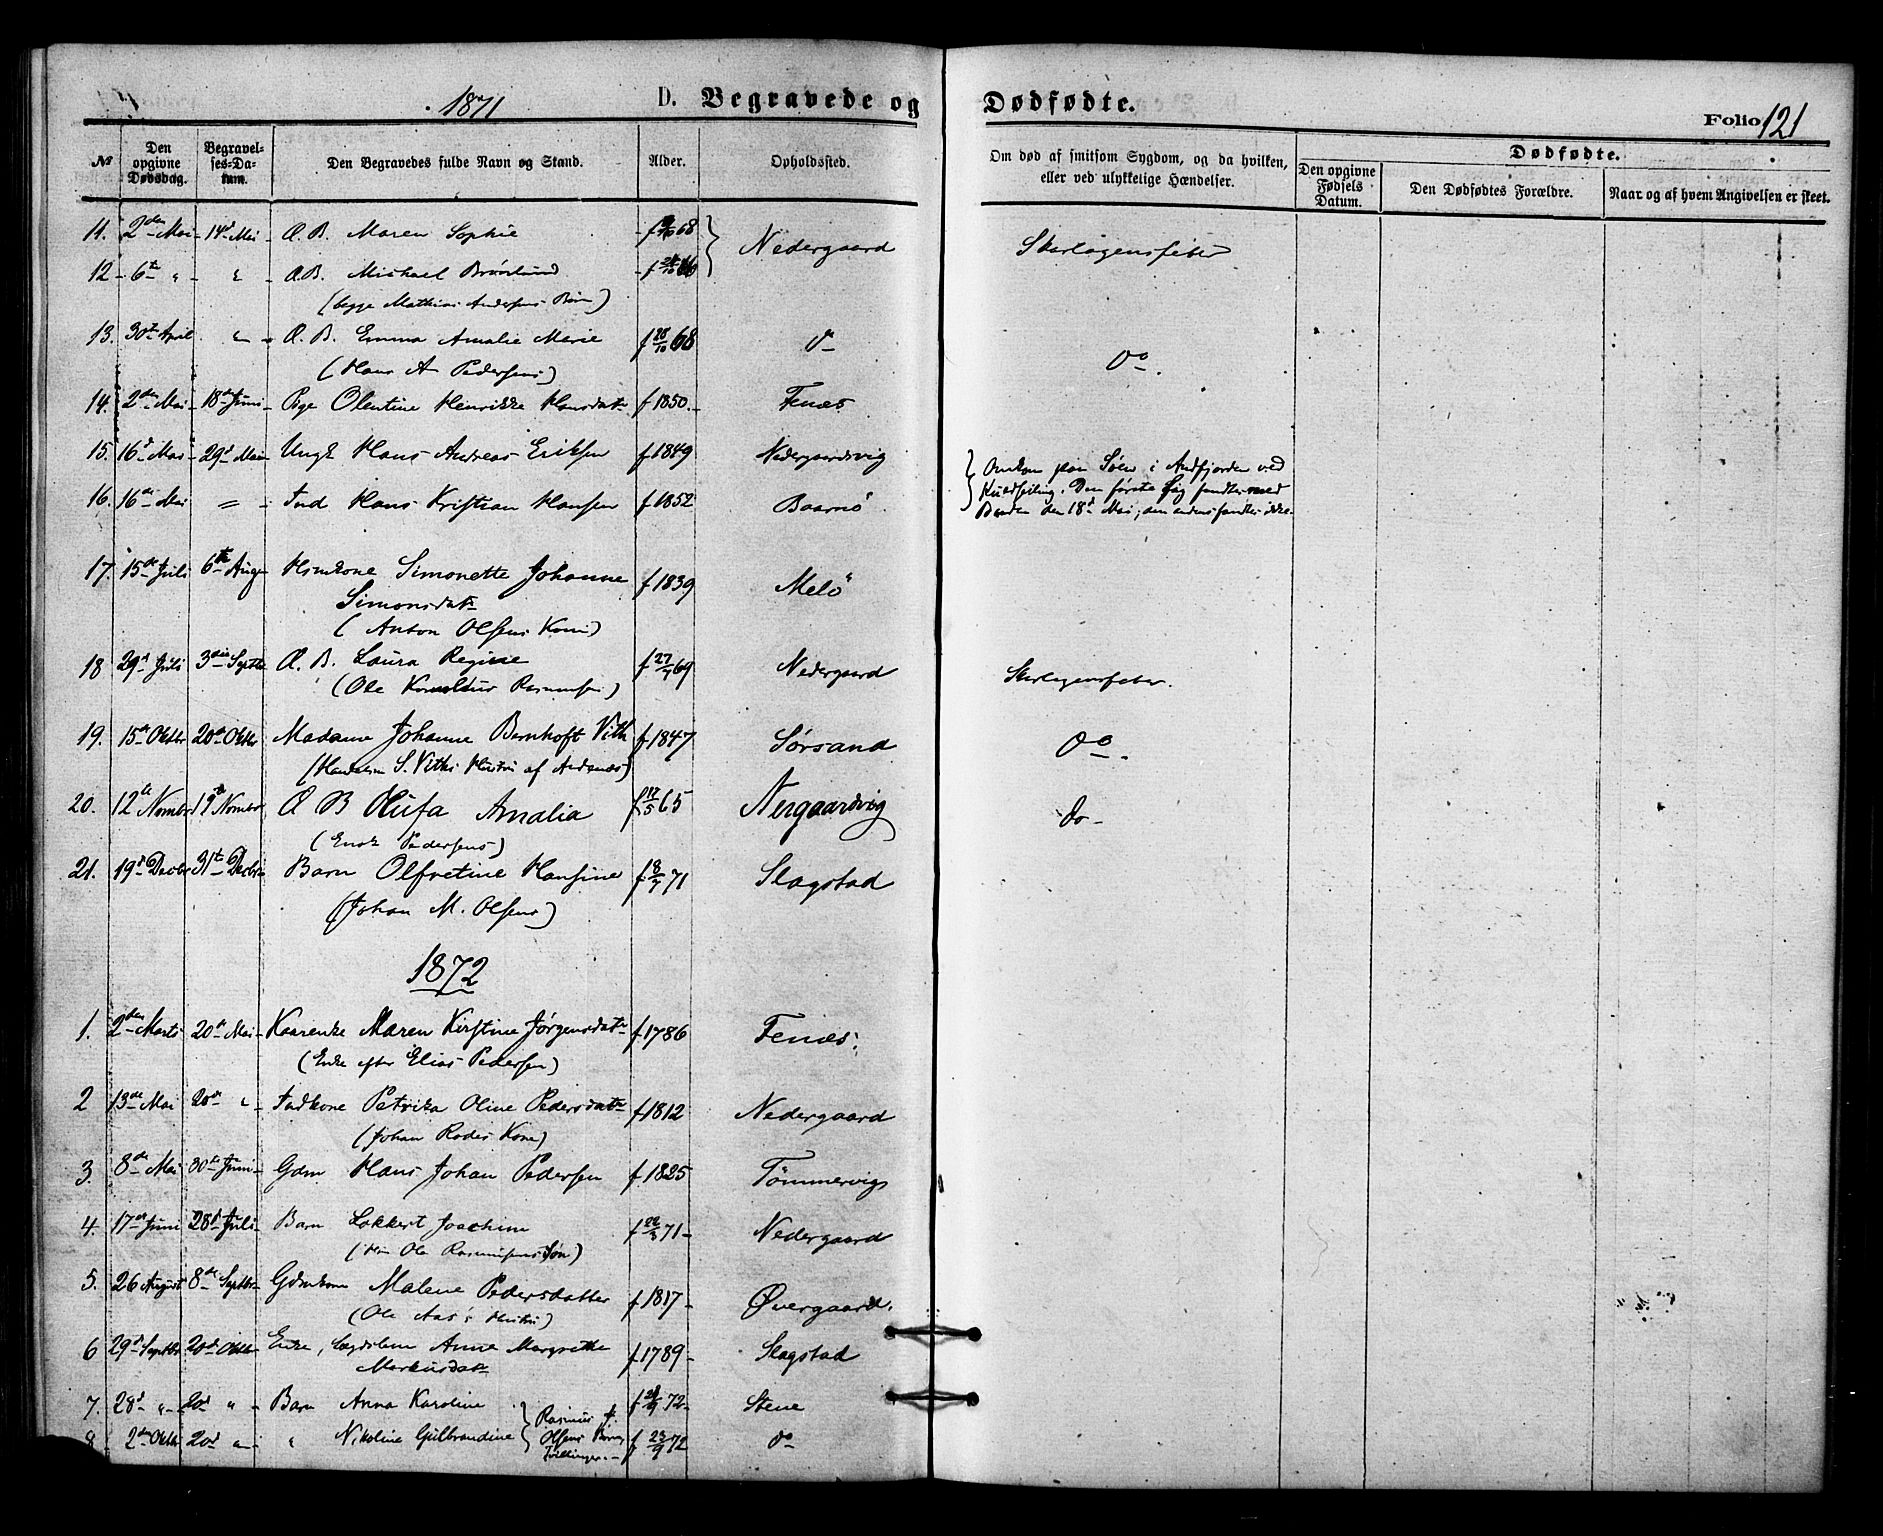 1871 D. Begravede og Dødfødte. Folio 121
№ Den opgivne Dødsdag. Begravelses-Datum. Den Begravedes fulde Navn og Stand. Alder. Opholdssted. Om død af smitsom Sygdom, og da hvilken, eller ved ulykkelige Hændelser. Dødfødte. Den opgivne Fødsels Datum. Den Dødfødtes Forældre. Naar og af hvem Angivelsen er skeet.
11. 2den Mai 14d Mai Æ. B. Maren Sophie 68 Nedergaard Skarlagensfeber
12 6te " " Æ.B. Michael Brönlund 66
(begge Mathias Andersens Börn)
13. 30te April " Æ. B. Emma Amalie Marie f 28/10 68 do
(Hans A Pedersens) Do.
14. 2den Mai 18de Juni Pige Olentine Henrikke Hansdatr f 1850. Fenæs
15. 16d Mai 29d Mai Ungk Hans Andreas Eriksen f 1849 Nedergaardsvig } Omkom paa Søen i Andfjorden ved
16. 16de Mai " Ind Hans Kristian Hansen f 1852 Baarnö Kuldseiling. Den første Lig fandtes med
Baaden den 18d Mai, den anden fandtes ikke.
17. 15de Juli 6te Aug Hmkone Simonette Johanne f 1839 Melö
Simonsdatr
(Anton Olsens Kone)
18 29d Juli 3die Septbr Æ. B. Laura Regine f 27/7 69 Nedergaard Skarlagensfeber.
(Ole Kornelius Rasmussen)
19. 15de Oktbr 20de Oktbr Madame Johanne Bernhoft Vith f 1847 Sørsand Do.
(Handelsm S. Viths Hustru af Andenæs)
20. 12te Novmbr 19de Novmbr Æ B Olufa Amalia f 17/5 65 Nergaardsvig do
(Enok Pedersens)
21. 19d Decbr 31te Decbr Barn Olfretine Hansine f. 8/7 71 Slagstad
(Johan M. Olsens)
1872
1. 2den Marts 20de Mai Kaarenke Maren Kirstine Jørgensdatr f. 1786 Fenæs.
(Enke efter Elias Pedersen)
2 13de Mai 20de " Indkone Petrika Oline Pedersdatr f. 1812 Nedergaard
(Johan Rodes Kone)
3. 8de Mai 30te Juni Gdm Hans Johan Pedersen f. 1825 Tömmervig
4. 17de Juni 28d Juli Barn Lokkert Joachim f 22/3 71 Nedergaard
(Hm Ole Rasmussens Søn)
5. 26 August 8de Septbr Gdmkone Malene Pedersdatter f 1817 Øvergaard.
(Ole Aas's Hustru)
6 29d Septbr 20de Oktbr Enke, Lægdslem Anne Margrethe f 1789 Slagstad
Markusdatr
7. 28d " 20d " Barn Anna Karoline 72 Stene
8 2den Oktbr 20d " " Nikoline Gulbrandine } Rasmus J. Olsens Börn, Tvillinger f 23/9 72 do